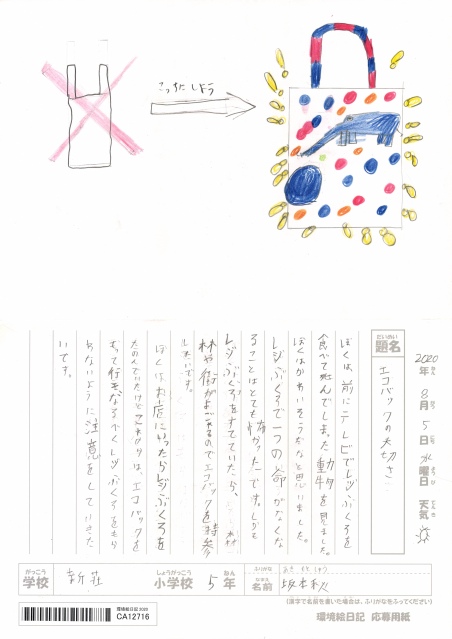 こっちにしよう
2020年 8月 5日 水曜日 天気
だいめい
題名
エコバックの大切さ
ぼくは、前にテレビでレジぶくろを
食べて死んでしまった動物を見ました。
ぼくはかわいそうだなと思いました。
レジぶくろで一つの命がなくな
ることはとても悲しかったです。しかも
レジぶくろをすてていたら、森
林や街がよごれるのでエコバックを持参
ぼくはお店にいったらレジぶくろを
たのんでいたけどこれからは、エコバックを
もって行き、なるべくレジぶくろをもら
わないように注意をしていきた
いです。
がっこう
学校
新荘
しょうがっこう
小学校
5年
ねん
ふりがな
なまえ
名前
坂本秋
(漢字で名前を書いた場合は、ふりがなをふってください)
環境絵日記2020
CA12716
環境絵日記 応募用紙